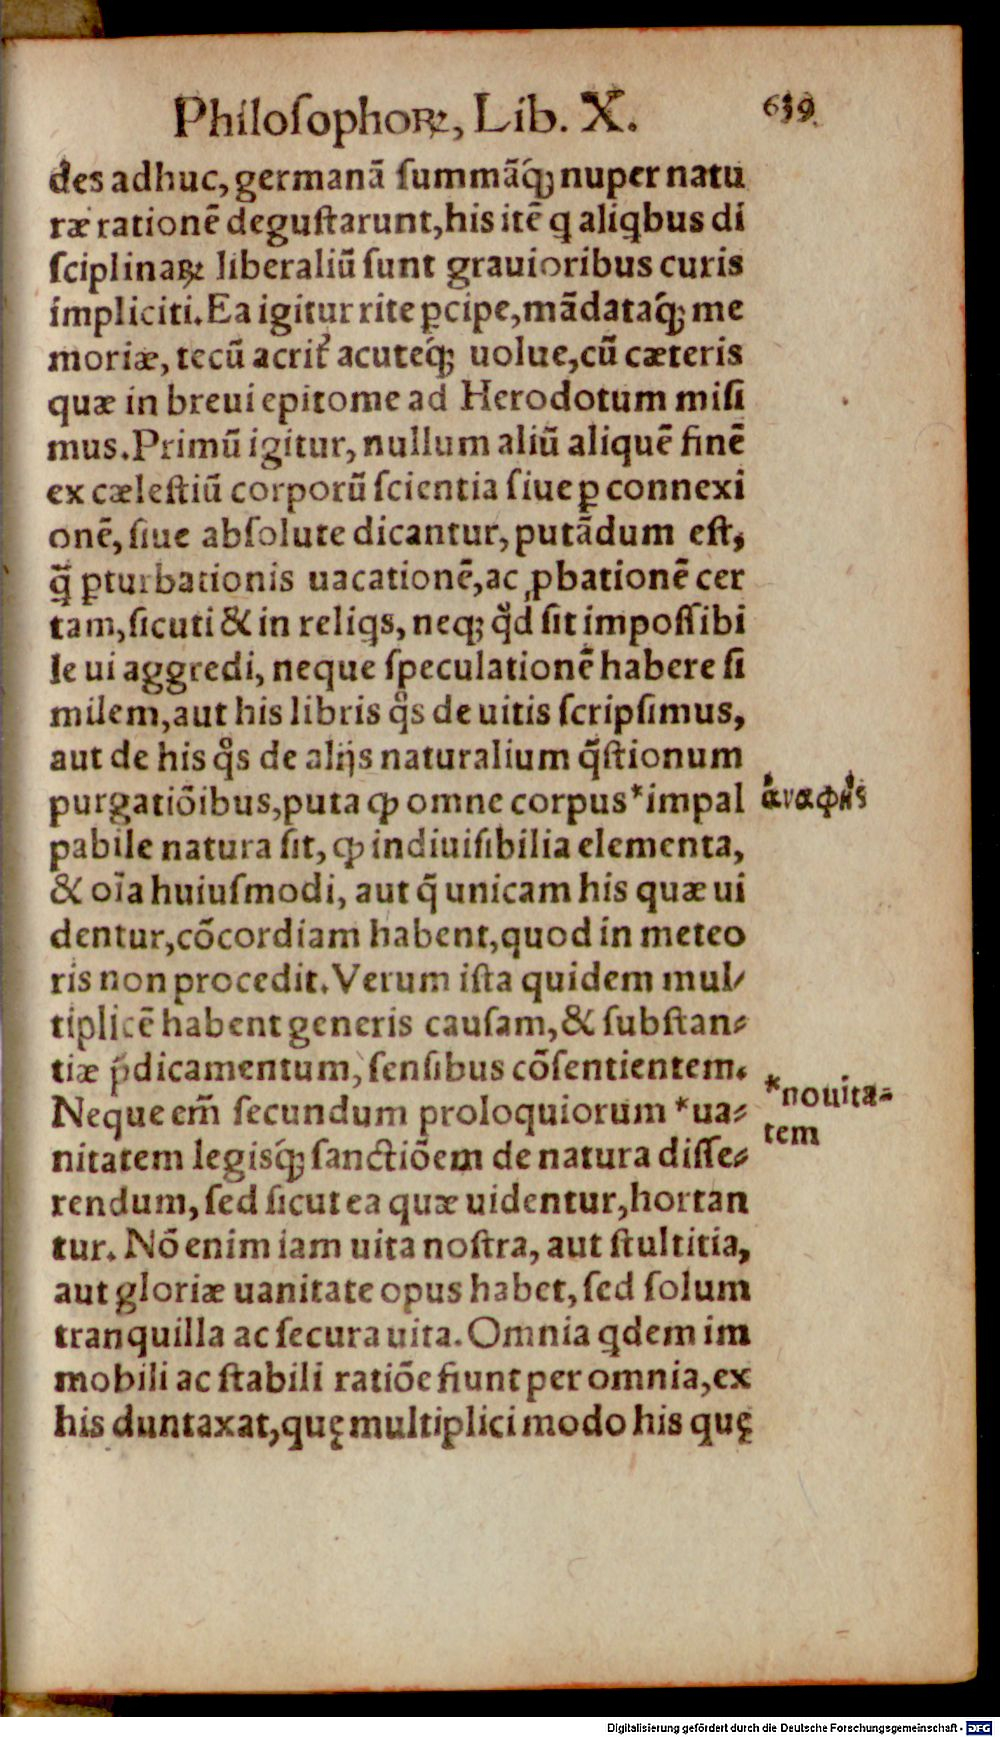 Philoſophoꝝ, Lib. X. 639
des adhuc, germanā ſummāq́ꝫ nuper natu
ræ rationē deguſtarunt, his itē q aliqbus di
ſciplinaꝝ liberaliū ſunt grauioribus curis
impliciti. Ea igitur rite ꝑcipe, mādataq́ꝫ me
moriæ, tecū acrit᷑ acuteq́ꝫ uolue, cū cæteris
quæ in breui epitome ad Herodotum miſi
mus. Primū igitur, nullum aliū aliquē finē
ex cæleſtiū corporū ſcientia ſiue ꝑ connexi
onē, ſiue abſolute dicantur, putādum eſt,
q̄̃ ꝑturbationis uacationē, ac ꝓbationē cer
tam, ſicuti & in reliqs, neqꝫ qd̛ ſit impoſſibi
le ui aggredi, neque ſpeculationē habere ſi
milem, aut his libris qͦs de uitis ſcripſimus,
aut de his qͦs de alijs naturalium q̃ſtionum
purgatiōibus, puta ꝙ omne corpus *impal
pabile natura ſit, ꝙ indiuiſibilia elementa,
& oīa huiuſmodi, aut q̃ unicam his quæ ui
dentur, cōcordiam habent, quod in meteo
ris non procedit. Verum iſta quidem mul⸗
tiplicē habent generis cauſam, & ſubſtan⸗
tiæ p̄dicamentum, ſenſibus cōſentientem.
Neque em̄ ſecundum proloquiorum *ua⸗
nitatem legisq́ꝫ ſanctiōem de natura diſſe⸗
rendum, ſed ſicut ea quæ uidentur, hortan
tur. Nō enim iam uita noſtra, aut ſtultitia,
aut gloriæ uanitate opus habet, ſed ſolum
tranquilla ac ſecura uita. Omnia qdem im
mobili ac ſtabili ratiōe fiunt per omnia, ex
his duntaxat, quę multiplici modo his quę
ἀναφὴς
*nouita⸗
tem
Digitalisierung gefördert durch die Deutsche Forschungsgemeinschaft - DFG